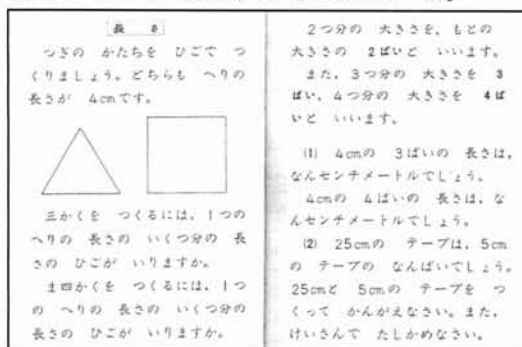 長 さ
つぎの かたちを ひごで つ
くりましょう。どちらも へりの
長さが 4cmです。
三かくを つくるには、1つの
へりの 長さの いくつ分の 長
さの ひごが いりますか。
ま四かくを つくるには、1つ
の へりの 長さの いくつ分の
長さの ひごが いりますか。
2つ分の 大きさを、もとの
大きさの 2ばいと いいます。
また、3つ分の 大きさを 3
ばい、4つ分の 大きさを 4ば
いと いいます。
(1) 4cmの 3ばいの 長さは、
なんセンチメートルでしょう。
4cmの 4ばいの 長さは、な
んセンチメートルでしょう。
(2) 25cmの テープは、5cm
の テープの なんばいでしょう。
25cmと 5cmの テープを つ
くって かんがえなさい。また、
けいさんで たしかめなさい。